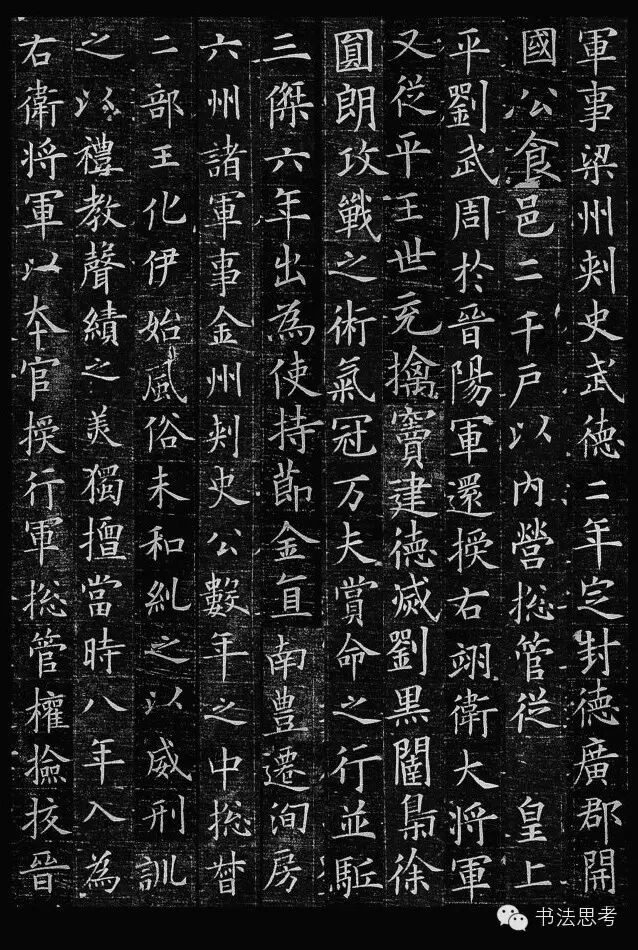 軍事梁州刾史武德二年定封德廣郡開
國公食邑二千戶以内營揔管從皇上
平劉武周於晉陽軍還授右翊衛大將軍
又從平王世充擒竇建德滅劉黑闥梟徐
圎朗攻戰之術氣冠万夫賞命之行並駈
三傑六年出為使持節金直南豊遷洵房
六州諸軍事金州刾史公數年之中揔督
二部王化伊始風俗未和糺之以威刑訓
之以禮教聲績之美獨擅當時八年入為
右衛将軍以夲官授行軍揔管權撿挍晉
书法思考